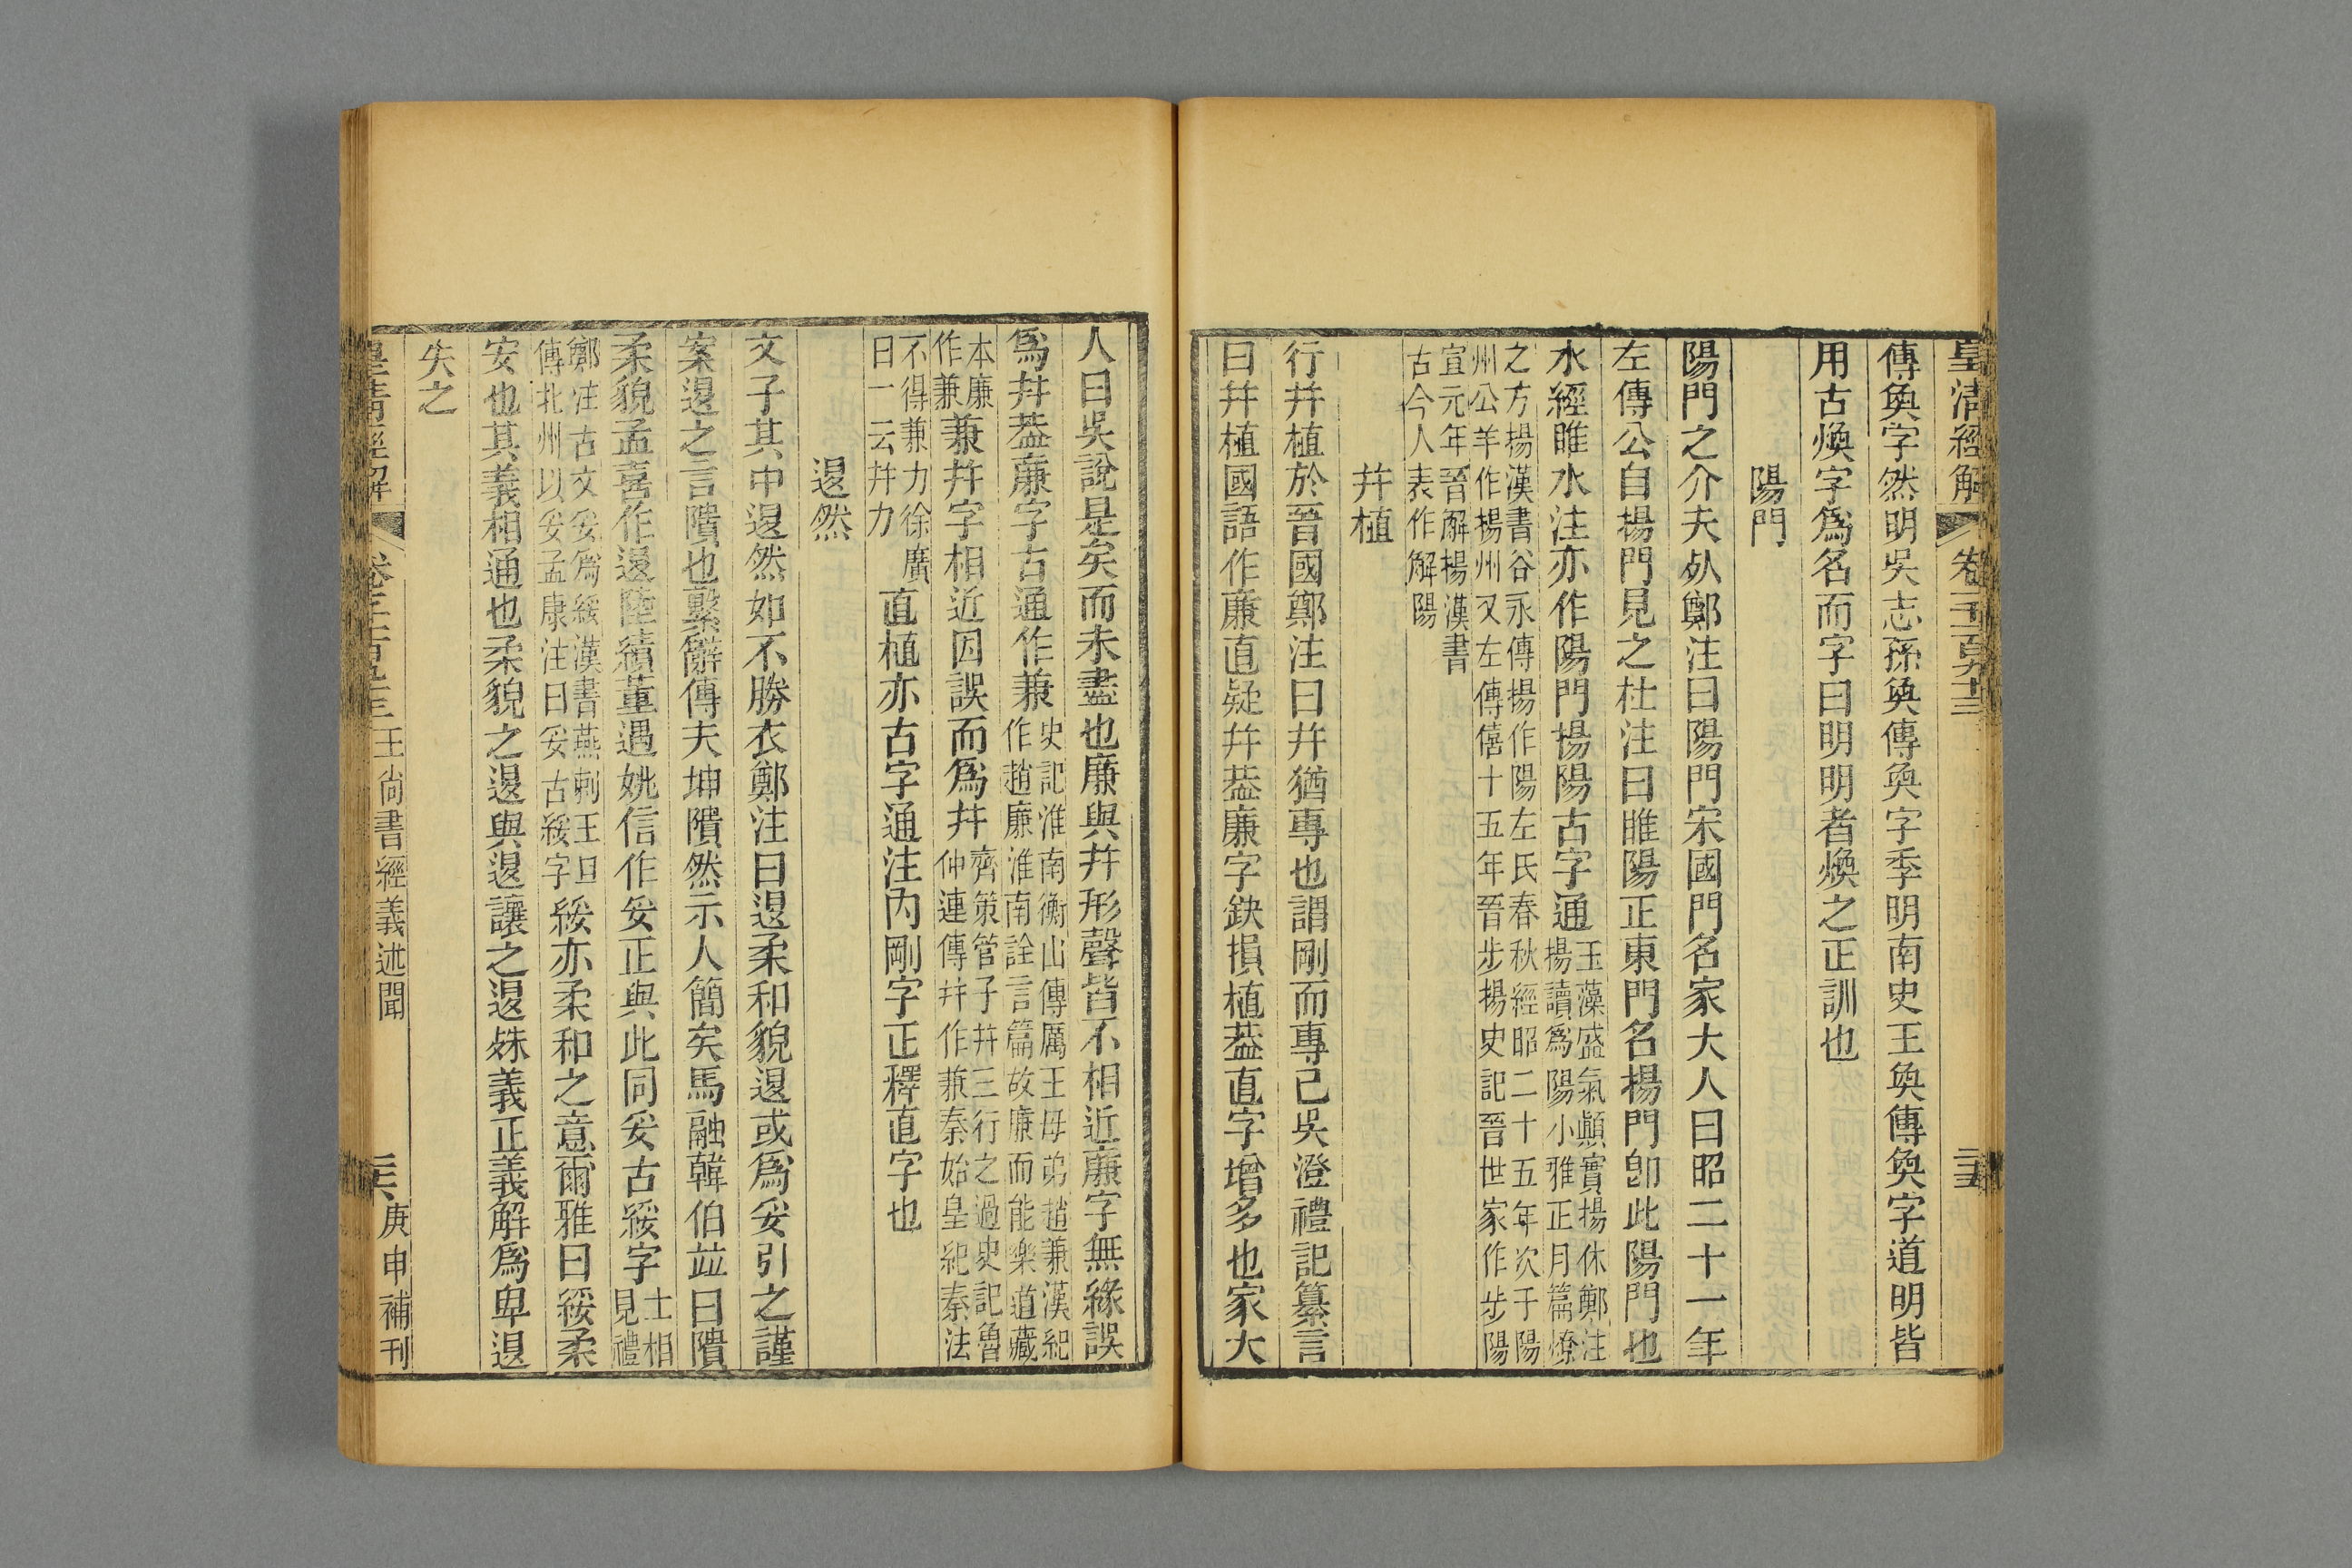 皇淸經解 卷一千一百九十三 二十五
傳奐字然明吳志孫奐傳奐字季明南史王奐傳奐字道明皆
用古煥字爲名而字曰明明者煥之正訓也
陽門
陽門之介夫死鄭注曰陽門宋國門名家大人曰昭二十一年
左傳公自揚門見之杜注曰睢陽正東門名楊門卽此陽門也
水經睢水注亦作陽門揚陽古字通玉藻盛氣顚實揚休鄭注
揚讀爲陽小雅正月篇燎
之方揚漢書谷永傳揚作陽左氏春秋經昭二十五年次于陽
州公羊作楊州又左傳僖十五年晉步揚史記晉世家作步陽
宣元年晉解揚漢書
古今人表作解陽
幷植
行幷植於晉國鄭注曰幷猶專也謂剛而專己吳澄禮記纂言
曰幷植國語作廉直疑幷葢廉字鈌損植葢直字增多也家大
人曰吳說是矣而未盡也廉與幷形聲皆不相近廉字無緣誤
爲幷葢廉字古通作兼史記淮南衡山傳厲王母弟趙兼漢紀
作趙廉淮南詮言篇故廉而能樂道藏
本廉
作兼兼幷字相近因誤而爲幷齊策管子幷三行之過史記魯
仲連傳幷作兼秦始皇紀秦法
不得兼力徐廣
曰一云幷力直植亦古字通注內剛字正釋直字也
退然
文子其中退然如不勝衣鄭注曰退柔和貌退或爲妥引之謹
案退之言隤也繫辭傳夫坤隤然示人簡矣馬融韓伯竝曰隤
柔貌孟喜作退陸績董遇姚信作妥正與此同妥古綏字士相
見禮
鄭注古文妥爲綏漢書燕剌王旦
傳北州以妥孟康注曰妥古綏字綏亦柔和之意爾雅曰綏柔
安也其義相通也柔貌之退與退讓之退殊義正義解爲卑退
失之
皇淸經解 卷一千一百九十三 王尙書經義述聞 二十六 庚申補刊